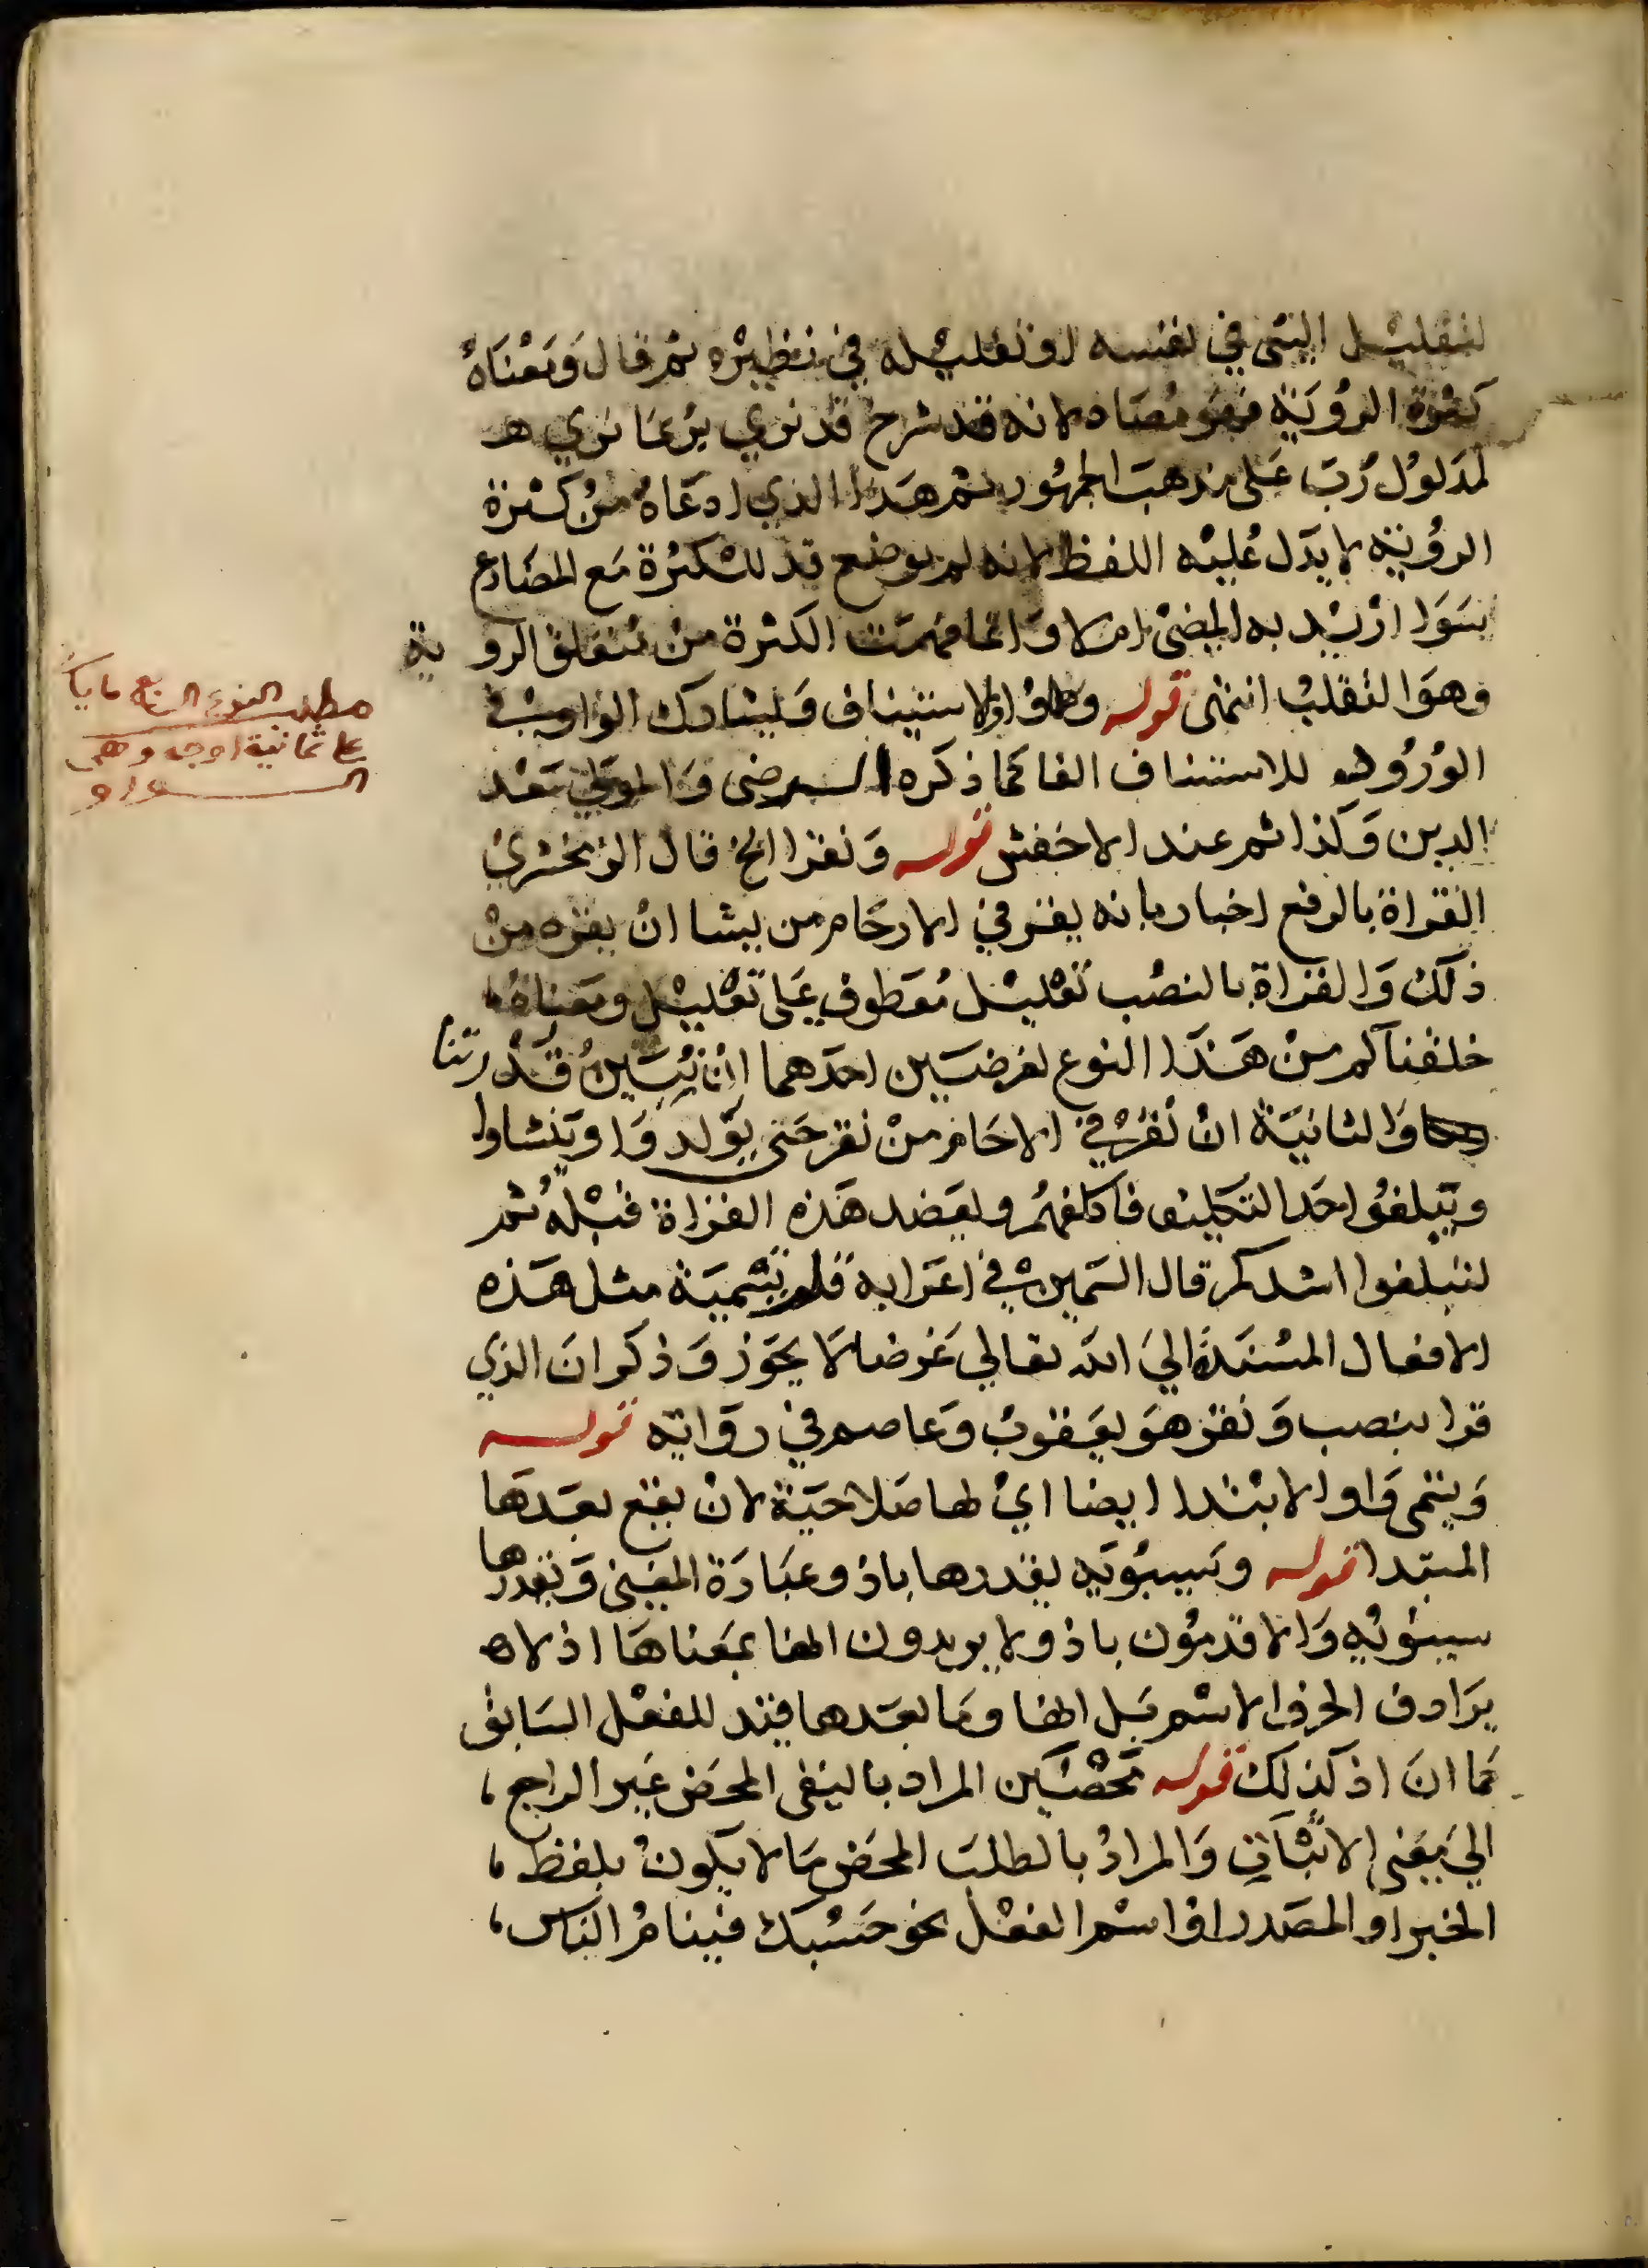 لتقليل الشي في نفسه او تقليله في نظيره ثم قال ومعناه
كثرة الروية فهو مضاد لانه قد شرح قد نري بربما نري هـ
لمدلول رب على مذهب الجمهور ثم هذا الذي ادعاه من كثرة
الروية لا يدل عليه اللفظ لانه لم يوضع قد للكثرة مع المضارع
سوا اريد به المضى ام لا وانما فهمت الكثرة من متعلق الروية
وهو التقلب انتهى قوله واو الاستيناف ويشارك الواو في
الورود للاستيناف الفا كما ذكره الرضى والمولي سعد
الدين وكذا ثم عند الاخفش قوله ونقر الخ قال الزمخشري
القراة بالرفع اخبار بانه يقر في الارحام من يشا ان يقره من
ذلك والقراة بالنصب تعليل معطوف على تعليل ومعناه
خلقناكم من هذا النوع لغرضين احدهما ان نبين قدرتنا
والثانية ان نقر في الاحام من نقر حتى يولدوا وينشاوا
ويبلغوا حد التكليف فاكلفهم ويعضد هذه القراة قبله ثم
لتبلغوا اشدكم قال السمين في اعرابه تسمية مثل هذه
الافعال المسندة الي الله تعالي غرضا لا يجوز وذكر ان الذي
قرا بنصب ونقر هو يعقوب وعاصم في رواته قوله
وتسمى واو الابتدا ايضا اي لها صلاحية لان يقع بعدها
المبتدا قوله وسيبويه يقدرها باذ وعبارة المغني وتقدرها
سيبويه والاقدمون باذ ولا يريدون انها بمعناها اذ لا هـ
يرادف الحرف الاسم بل انها وما بعدها قيد للفعل السابق
كما ان اذ كذلك قوله محضين المراد بالنفى المحض غير الراجع ،
الي معنى الاثبات والمراد بالطلب المحض ما لا يكون بلفظ ،
الخبر او المصدر او اسم الفعل نحو حسبك فينام الناس ،
مطلب النوع السابع ما ياتي
على ثمانية اوجه وهى
الواو